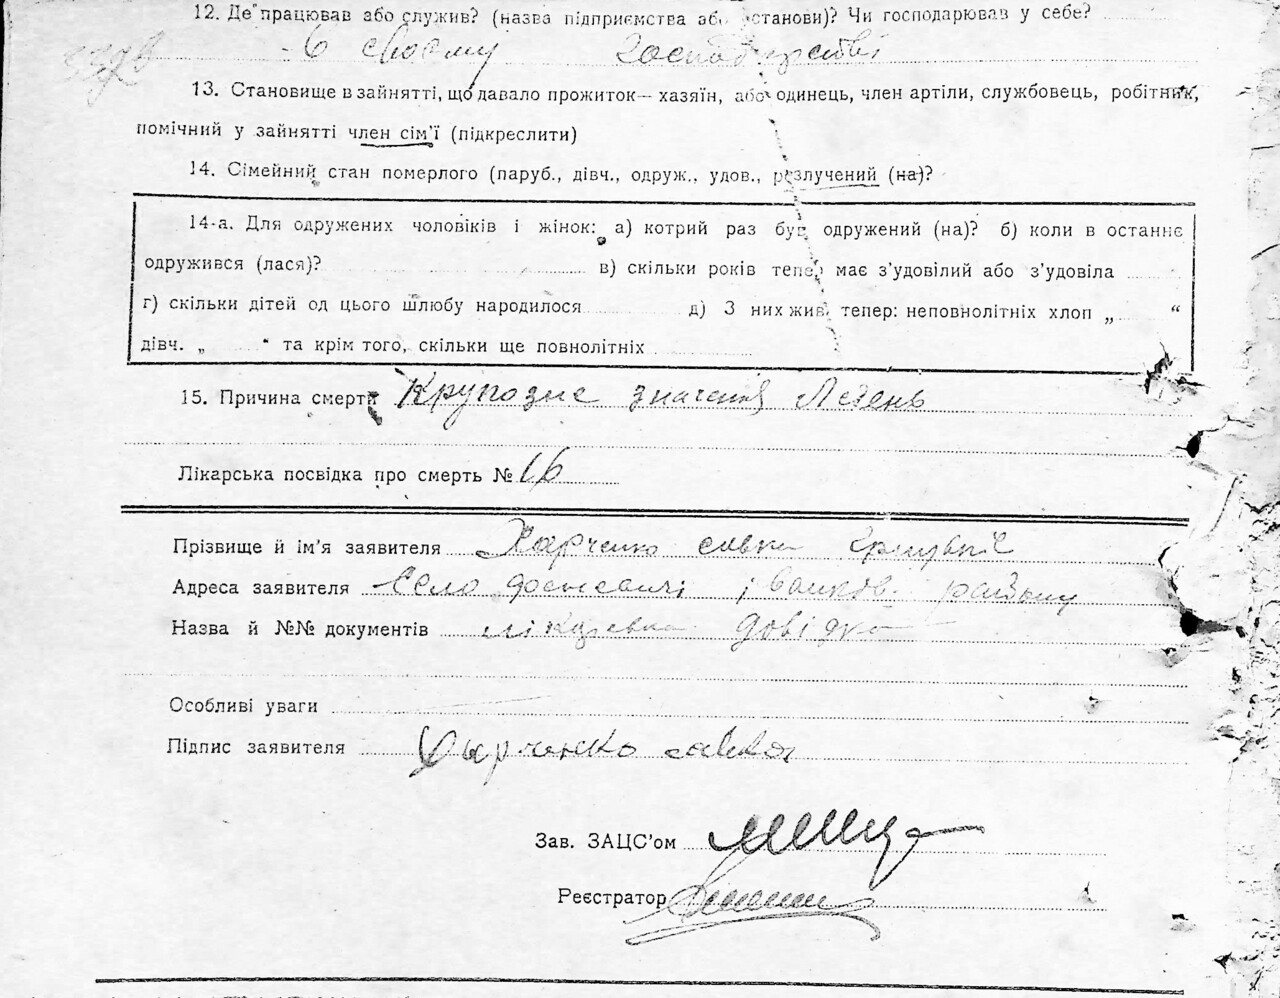 12. Де працював або служив? (назва підприємства або установи)? Чи господарював у себе?
в своєму господарстві
13. Становище в зайнятті, що давало прожиток— хазяїн, або одинець, член артіли, службовець, робітник,
помічний у зайнятті член сім'ї (підкреслити)
14. Сімейний стан померлого (паруб., дівч., одруж., удов., розлучений (на)?
14-а. Для одружених чоловіків і жінок: а) котрий раз був одружений (на)? б) коли в останнє
одружився (лася)? в) скільки років тепер має з'удовілий або з'удовіла
г) скільки дітей од цього шлюбу народилося д) З них жив. тепер: неповнолітніх хлоп „ “
дівч. „ “ та крім того, скільки ще повнолітніх
15. Причина смерти Крупозне Легень
Лікарська посвідка про смерть № 16
Прізвище й ім'я заявителя Харченко савка
Адреса заявителя Село іванков. району
Назва й №№ документів довідка
Особливі уваги
Підпис заявителя Харченко савка
Зав. ЗАЦС'ом
Реєстратор